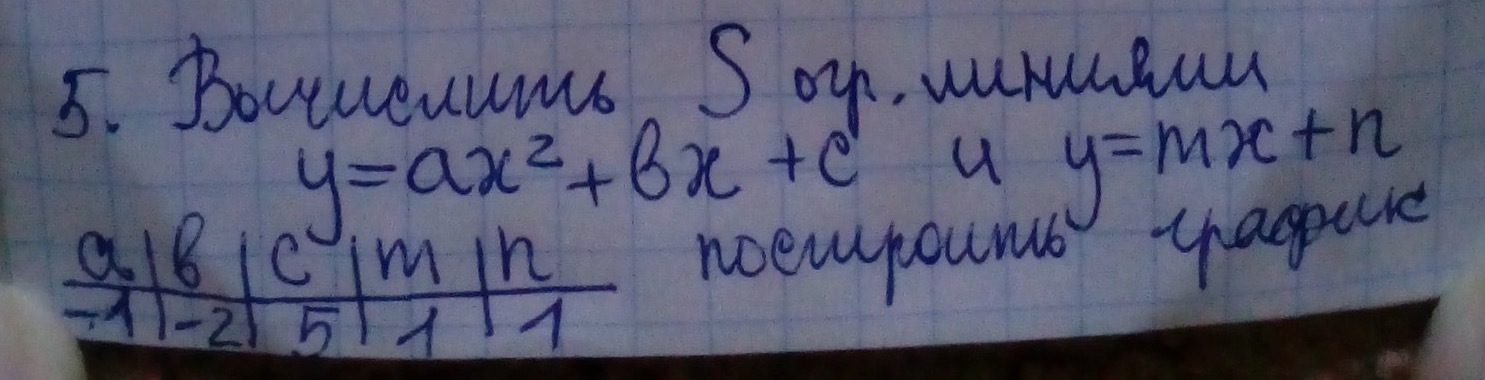 5. Вычислить S огр. линиями
y=ax²+bx+c и y=mx+n
a|b|c|m|n построить график
-1|-2|5|1|1